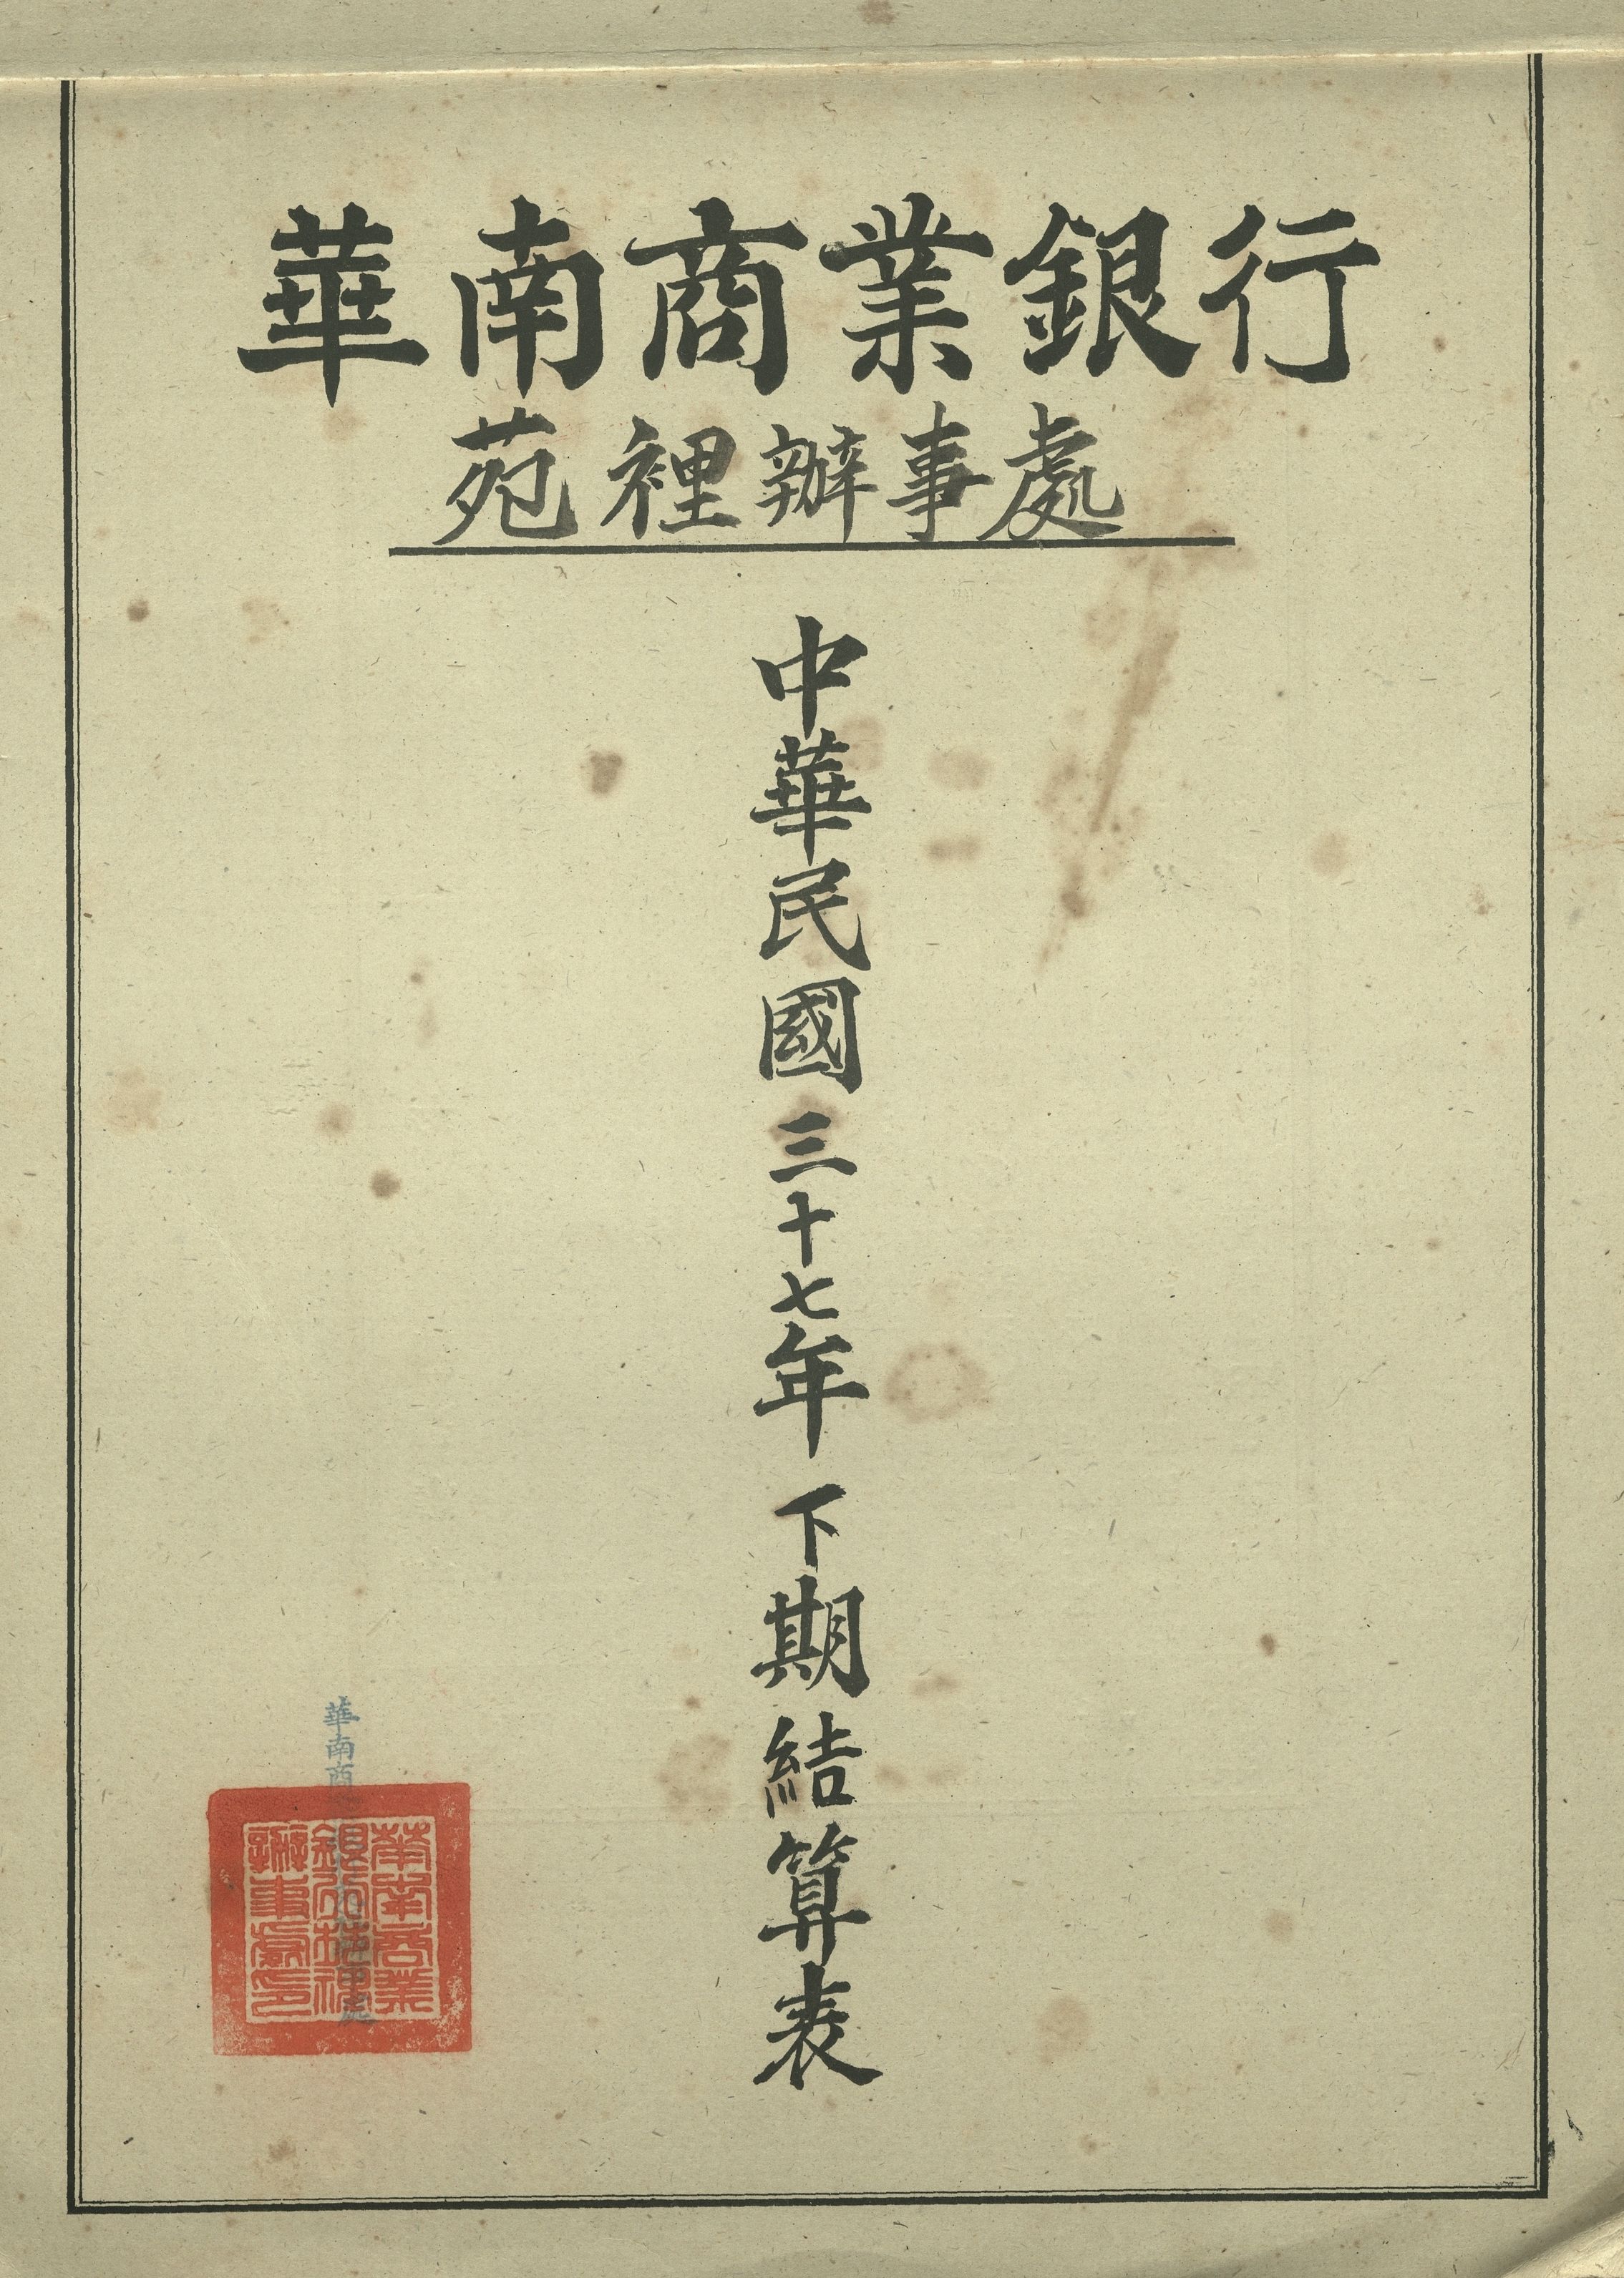 華南商業銀行
苑裡辦事處
中華民國三十七年下期結算表
華南商
華南商業
銀行苑裡
辦事處印